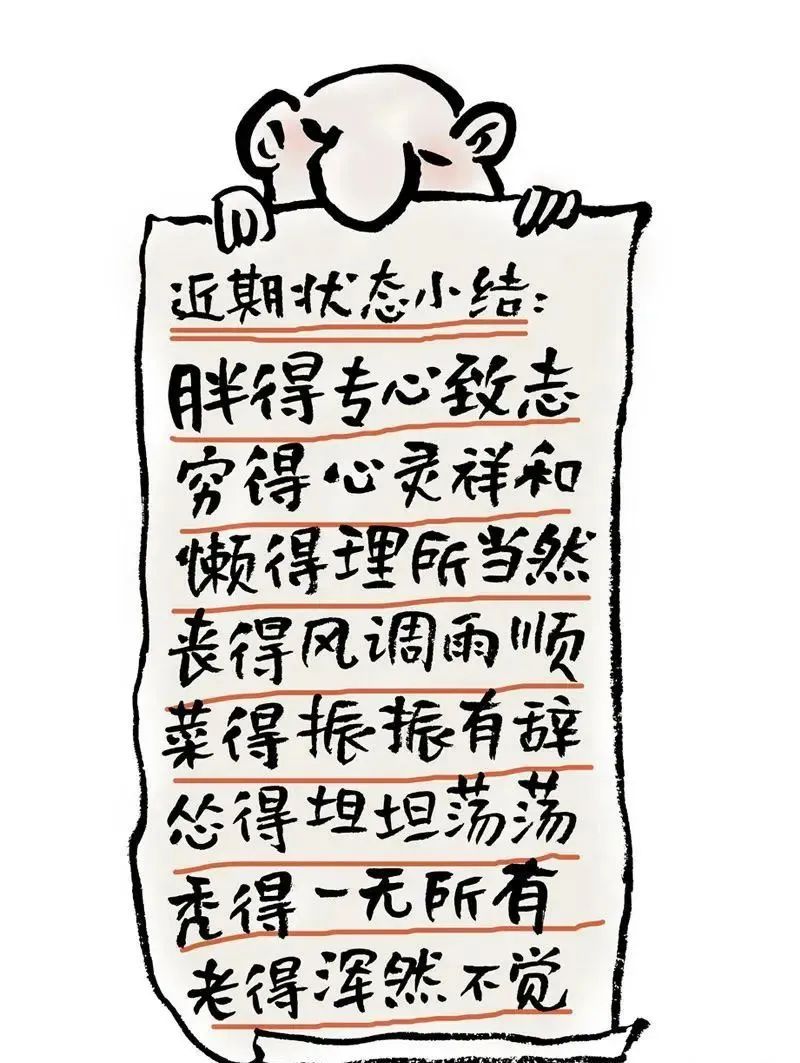 近期状态小结：
胖得专心致志
穷得心灵祥和
懒得理所当然
丧得风调雨顺
菜得振振有辞
怂得坦坦荡荡
秃得一无所有
老得浑然不觉